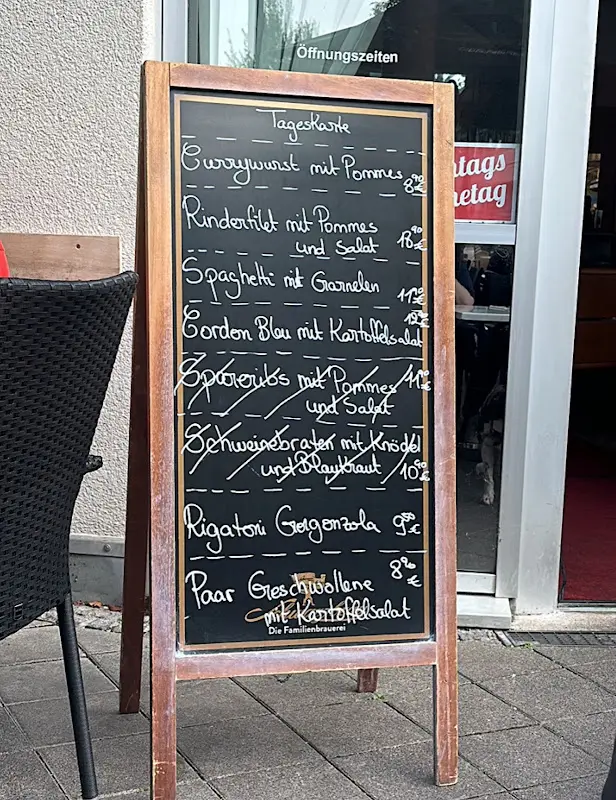 Öffnungszeiten
Tageskarte
Currywurst mit Pommes 8,90 €
Rinderfilet mit Pommes
und Salat 18,90 €
Spaghetti mit Garnelen
11,90 €
12,90 €
Cordon Bleu mit Kartoffelsalat
Spareribs mit Pommes 11,90 €
und Salat
Schweinebraten mit Knödel
und Blaukraut 10,90 €
Rigatoni Gorgonzola 9,50 €
8,90 €
Paar Geschwollene
mit Kartoffelsalat
Die Familienbrauerei
ntags
hetag